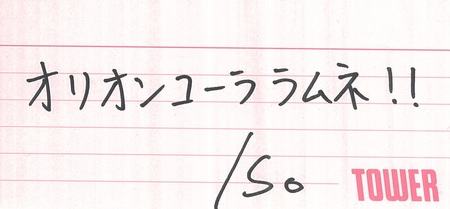 オリオンコーララムネ!!
/So
TOWER